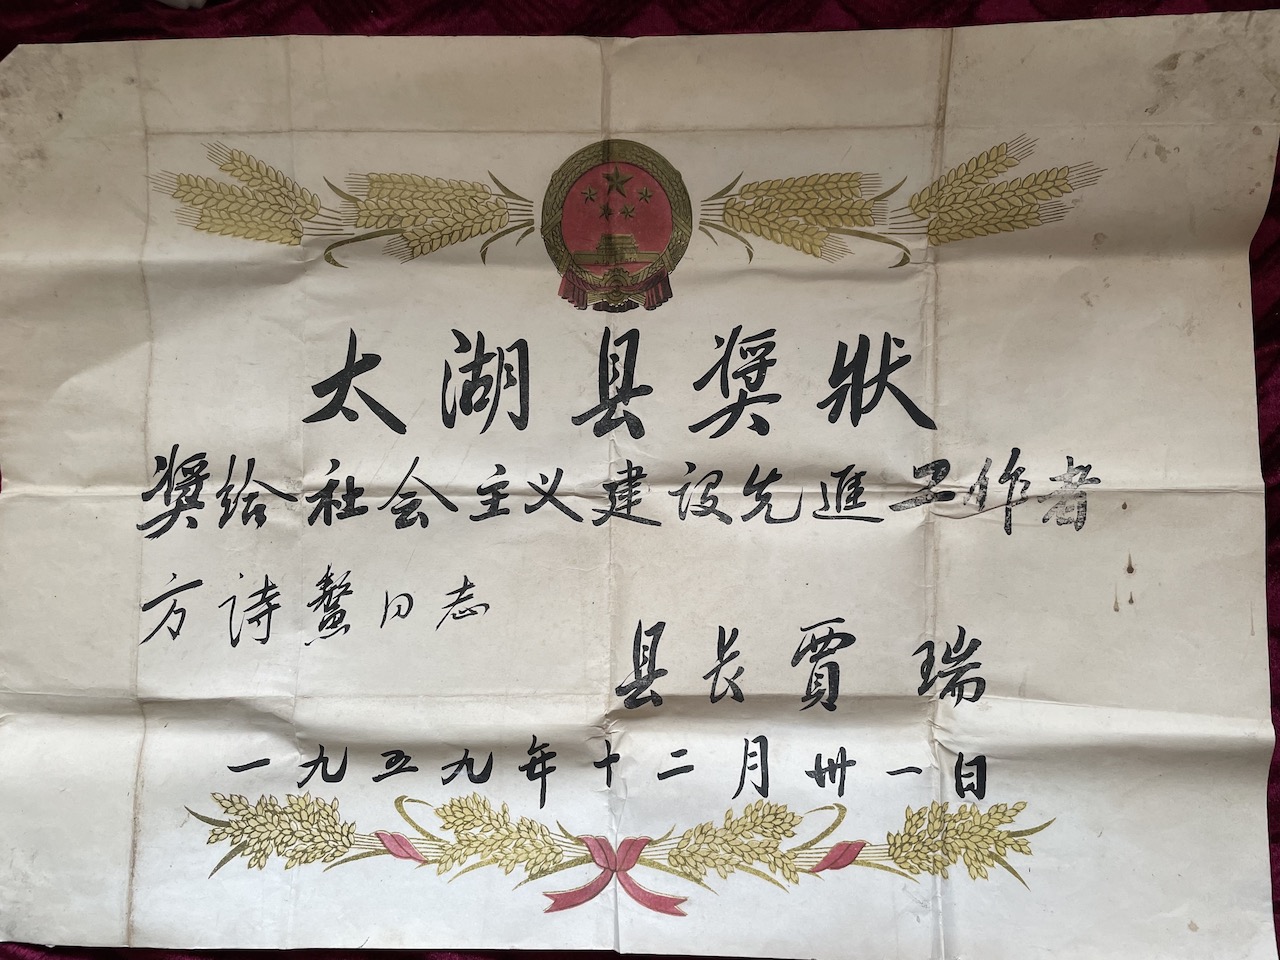 太湖县奖狀
奖给社会主义建设先進工作者
方诗鳌同志
县长賈瑞
一九五九年十二月卅一日